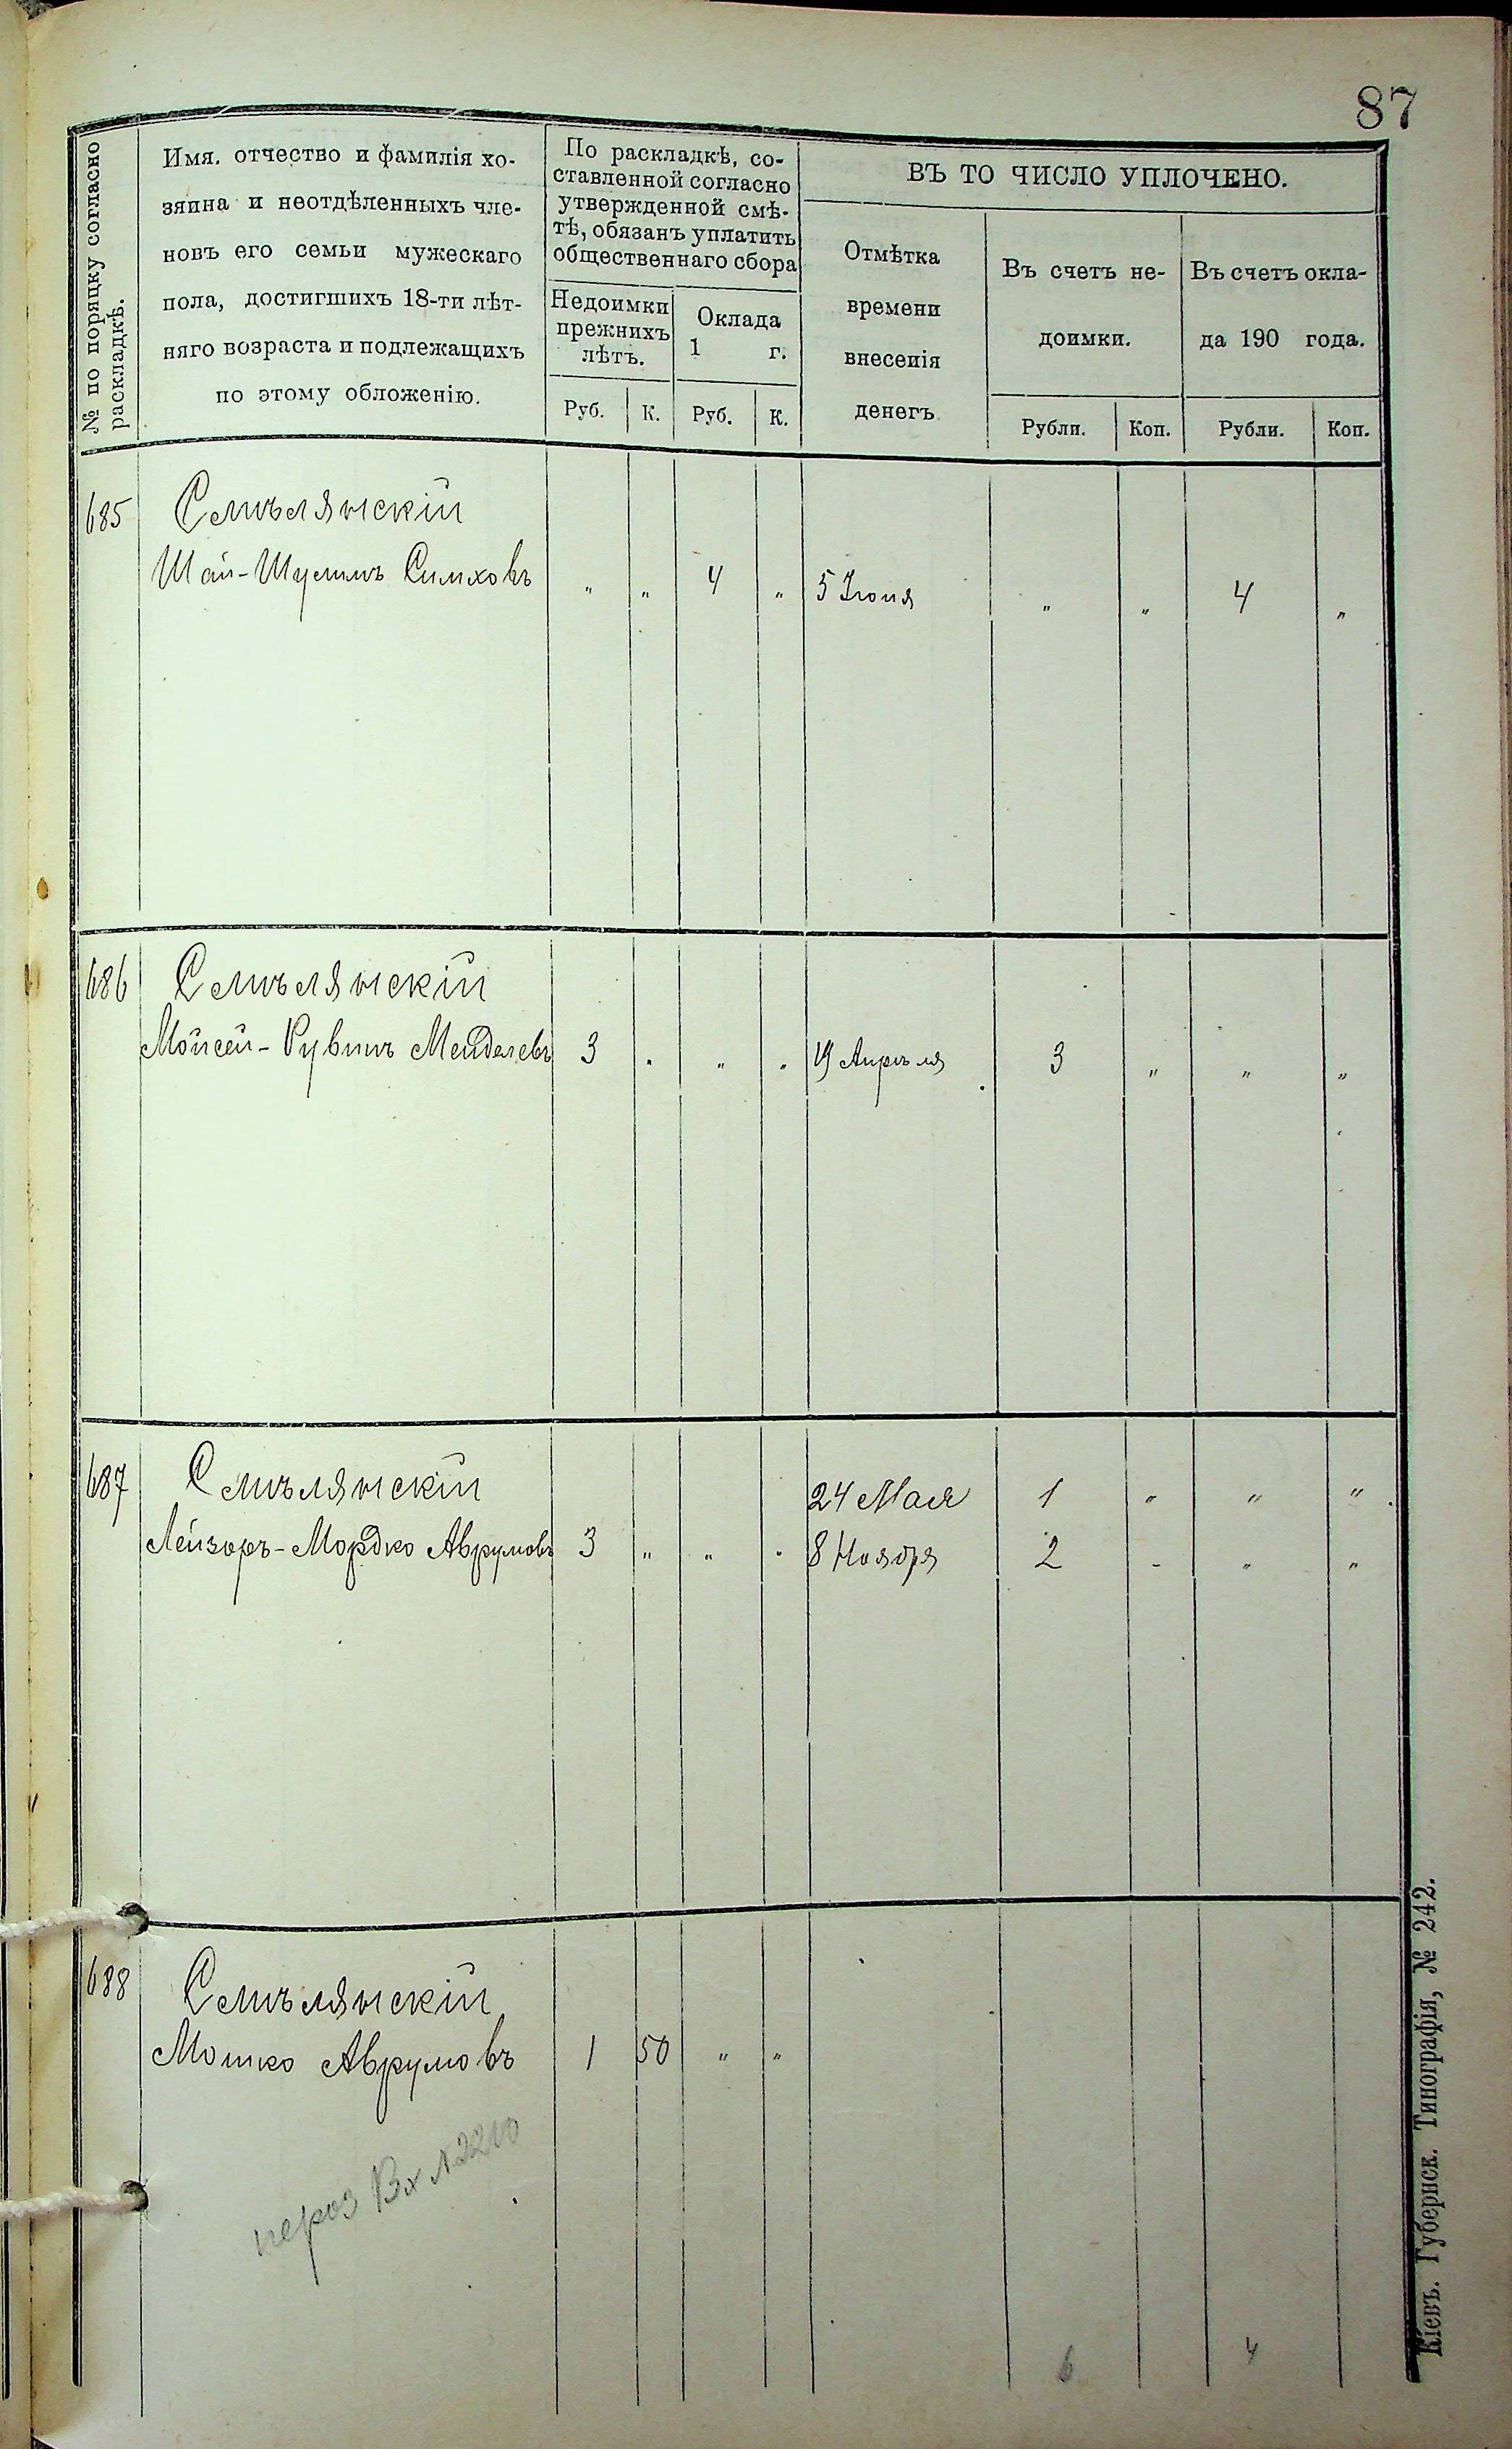 87
№ по порядку согласно
раскладкѣ.
Имя. отчество и фамилія хо-
зяина и неотдѣленныхъ чле-
новъ его семьи мужескаго
пола, достигшихъ 18-ти лѣт-
няго возраста и подлежащихъ
по этому обложенію.
По раскладкѣ, со-
ставленной согласно
утвержденной смѣ-
тѣ, обязанъ уплатить
общественнаго сбора
Недоимки
прежнихъ
лѣтъ.
Оклада
1 г.
Руб. К. Руб. К.
ВЪ ТО ЧИСЛО УПЛОЧЕНО.
Отмѣтка
времени
внесенія
денегъ
Въ счетъ не-
доимки.
Рубли. Коп.
Въ счетъ окла-
да 190 года.
Рубли. Коп.
685 Смѣлянскій
Шая-Шулимъ Симховъ „ „ 4 „ 5 Іюня „ „ 4 „
686 Смѣлянскій
Мойсей-Рувинъ Менделевъ 3 „ „ „ 19 Апрѣля 3 „ „ „
687 Смѣлянскій 24 Мая 1 „ „ „
Лейзоръ-Мордко Аврумовъ 3 „ „ „ 8 Ноября 2 „ „ „
688 Смѣлянскій
Мошко Аврумовъ 1 50 „ „
Вх №2210
6 4
Кіевъ. Губернск. Типографія, № 242.